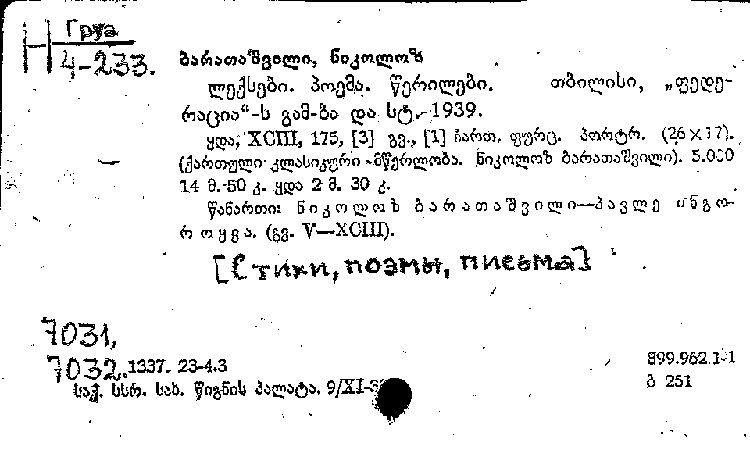 Груз
Н 4-233.
ბარათაშვილი, ნიკოლოზ
ლექსები. პოემა. წერილები. თბილისი, „ფედე-
რაცია“-ს გამ-ბა და სტ., 1939.
ყდა, XCIII, 175, [3] გვ., [1] ჩართ. ფურც. პორტრ. (26×17).
(ქართული კლასიკური მწერლობა. ნიკოლოზ ბარათაშვილი). 5.000
14 მ. 50 კ. ყდა 2 მ. 30 კ.
წინართი: ნიკოლოზ ბარათაშვილი—პავლე ინგო-
როყვა. (გვ. V—XCIII).
[Стихи, поэмы, письма]
7031,
7032. 1337. 23-4.3
899.962.1-1
საქ. სსრ. სახ. წიგნის პალატა. 9/XI-
ბ 251